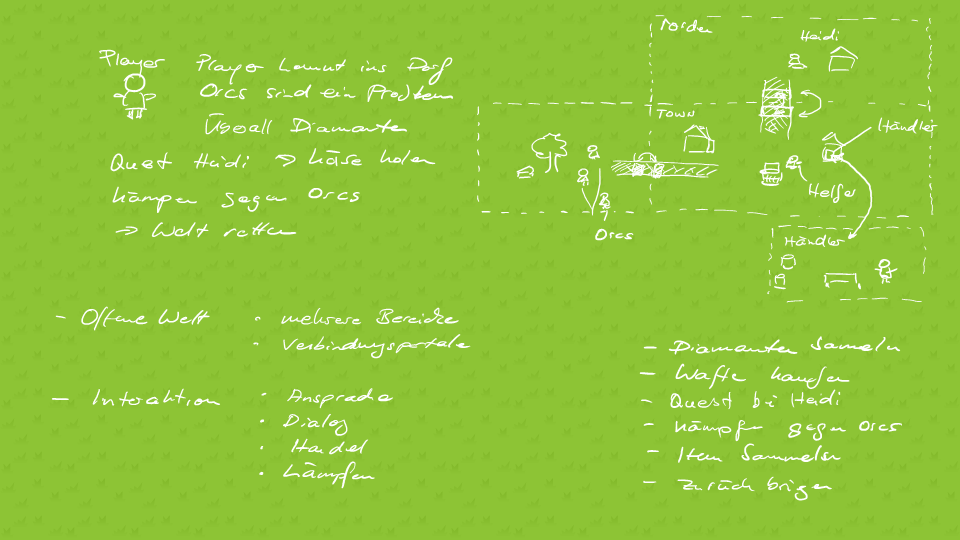 Player
Player kommt ins Dorf
Orcs sind ein Problem
Überall Diamanten
Quest Heidi → Käse holen
kämpfen gegen Orcs
→ Welt retten
Norden
Heidi
Town
Händler
Helfer
Orcs
Händler
- Offene Welt
• mehrere Bereiche
• Verbindungsportale
- Interaktion
• Ansprache
• Dialog
• Handel
• kämpfen
- Diamanten Sammeln
- Waffe kaufen
- Quest bei Heidi
- Kämpfen gegen Orcs
- Item Sammeln
- Zurück bringen